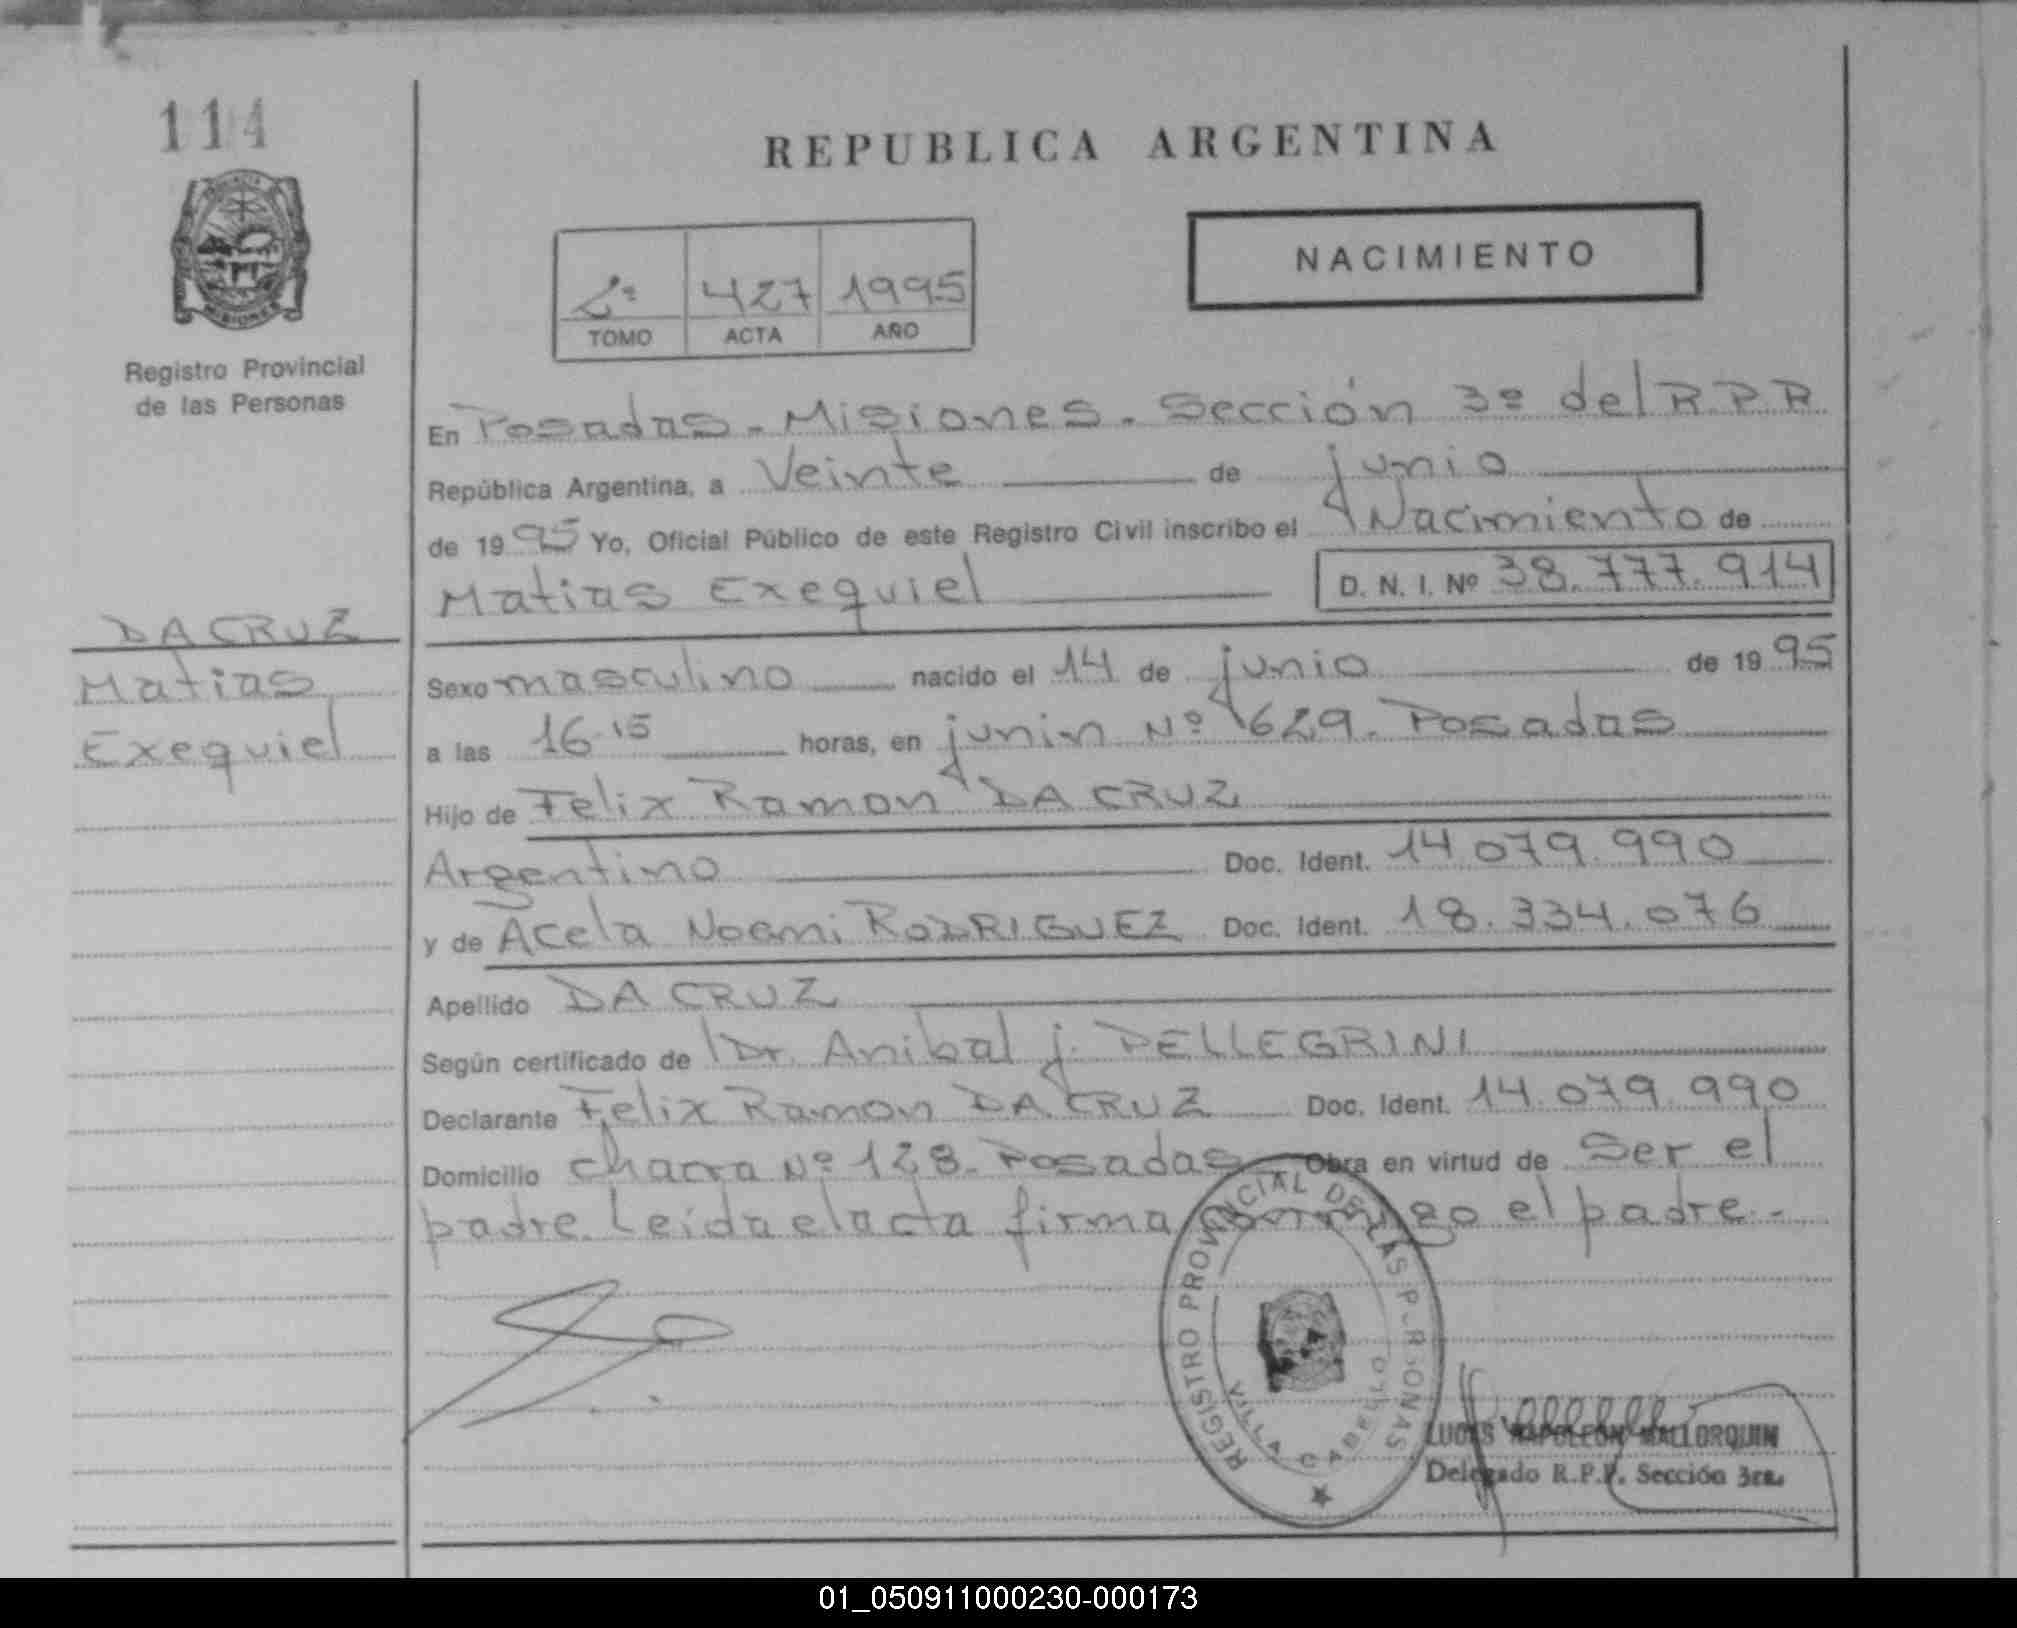 114
REPUBLICA ARGENTINA
NACIMIENTO
2º 427 1995
TOMO ACTA AÑO
MISIONES
Registro Provincial
de las Personas
En Posadas - Misiones. Sección 3º del R.P.P.
República Argentina, a Veinte de junio
de 1995 Yo, Oficial Público de este Registro Civil inscribo el Nacimiento de
Matias Exequiel D. N. I. Nº 38.777.914
DA CRUZ
Matias
Exequiel
Sexo masculino nacido el 14 de junio de 1995
a las 16.15 horas, en junin Nº 629. Posadas
Hijo de Felix Ramon DA CRUZ
Argentino Doc. Ident. 14.079.990
y de Acela Noemi RODRIGUEZ Doc. Ident. 18.334.076
Apellido DA CRUZ
Según certificado de Dr. Anibal j. PELLEGRINI
Declarante Felix Ramon DA CRUZ Doc. Ident. 14.079.990
Domicilio chacra Nº 128. Posadas Obra en virtud de Ser el
padre. Leida el acta firma conmigo el padre.-
REGISTRO PROVINCIAL DE LAS PERSONAS
VILLA CABELLO
NAPOLEON MALLORQUIN
Delegado R.P.P. Sección 3ra.
01_050911000230-000173